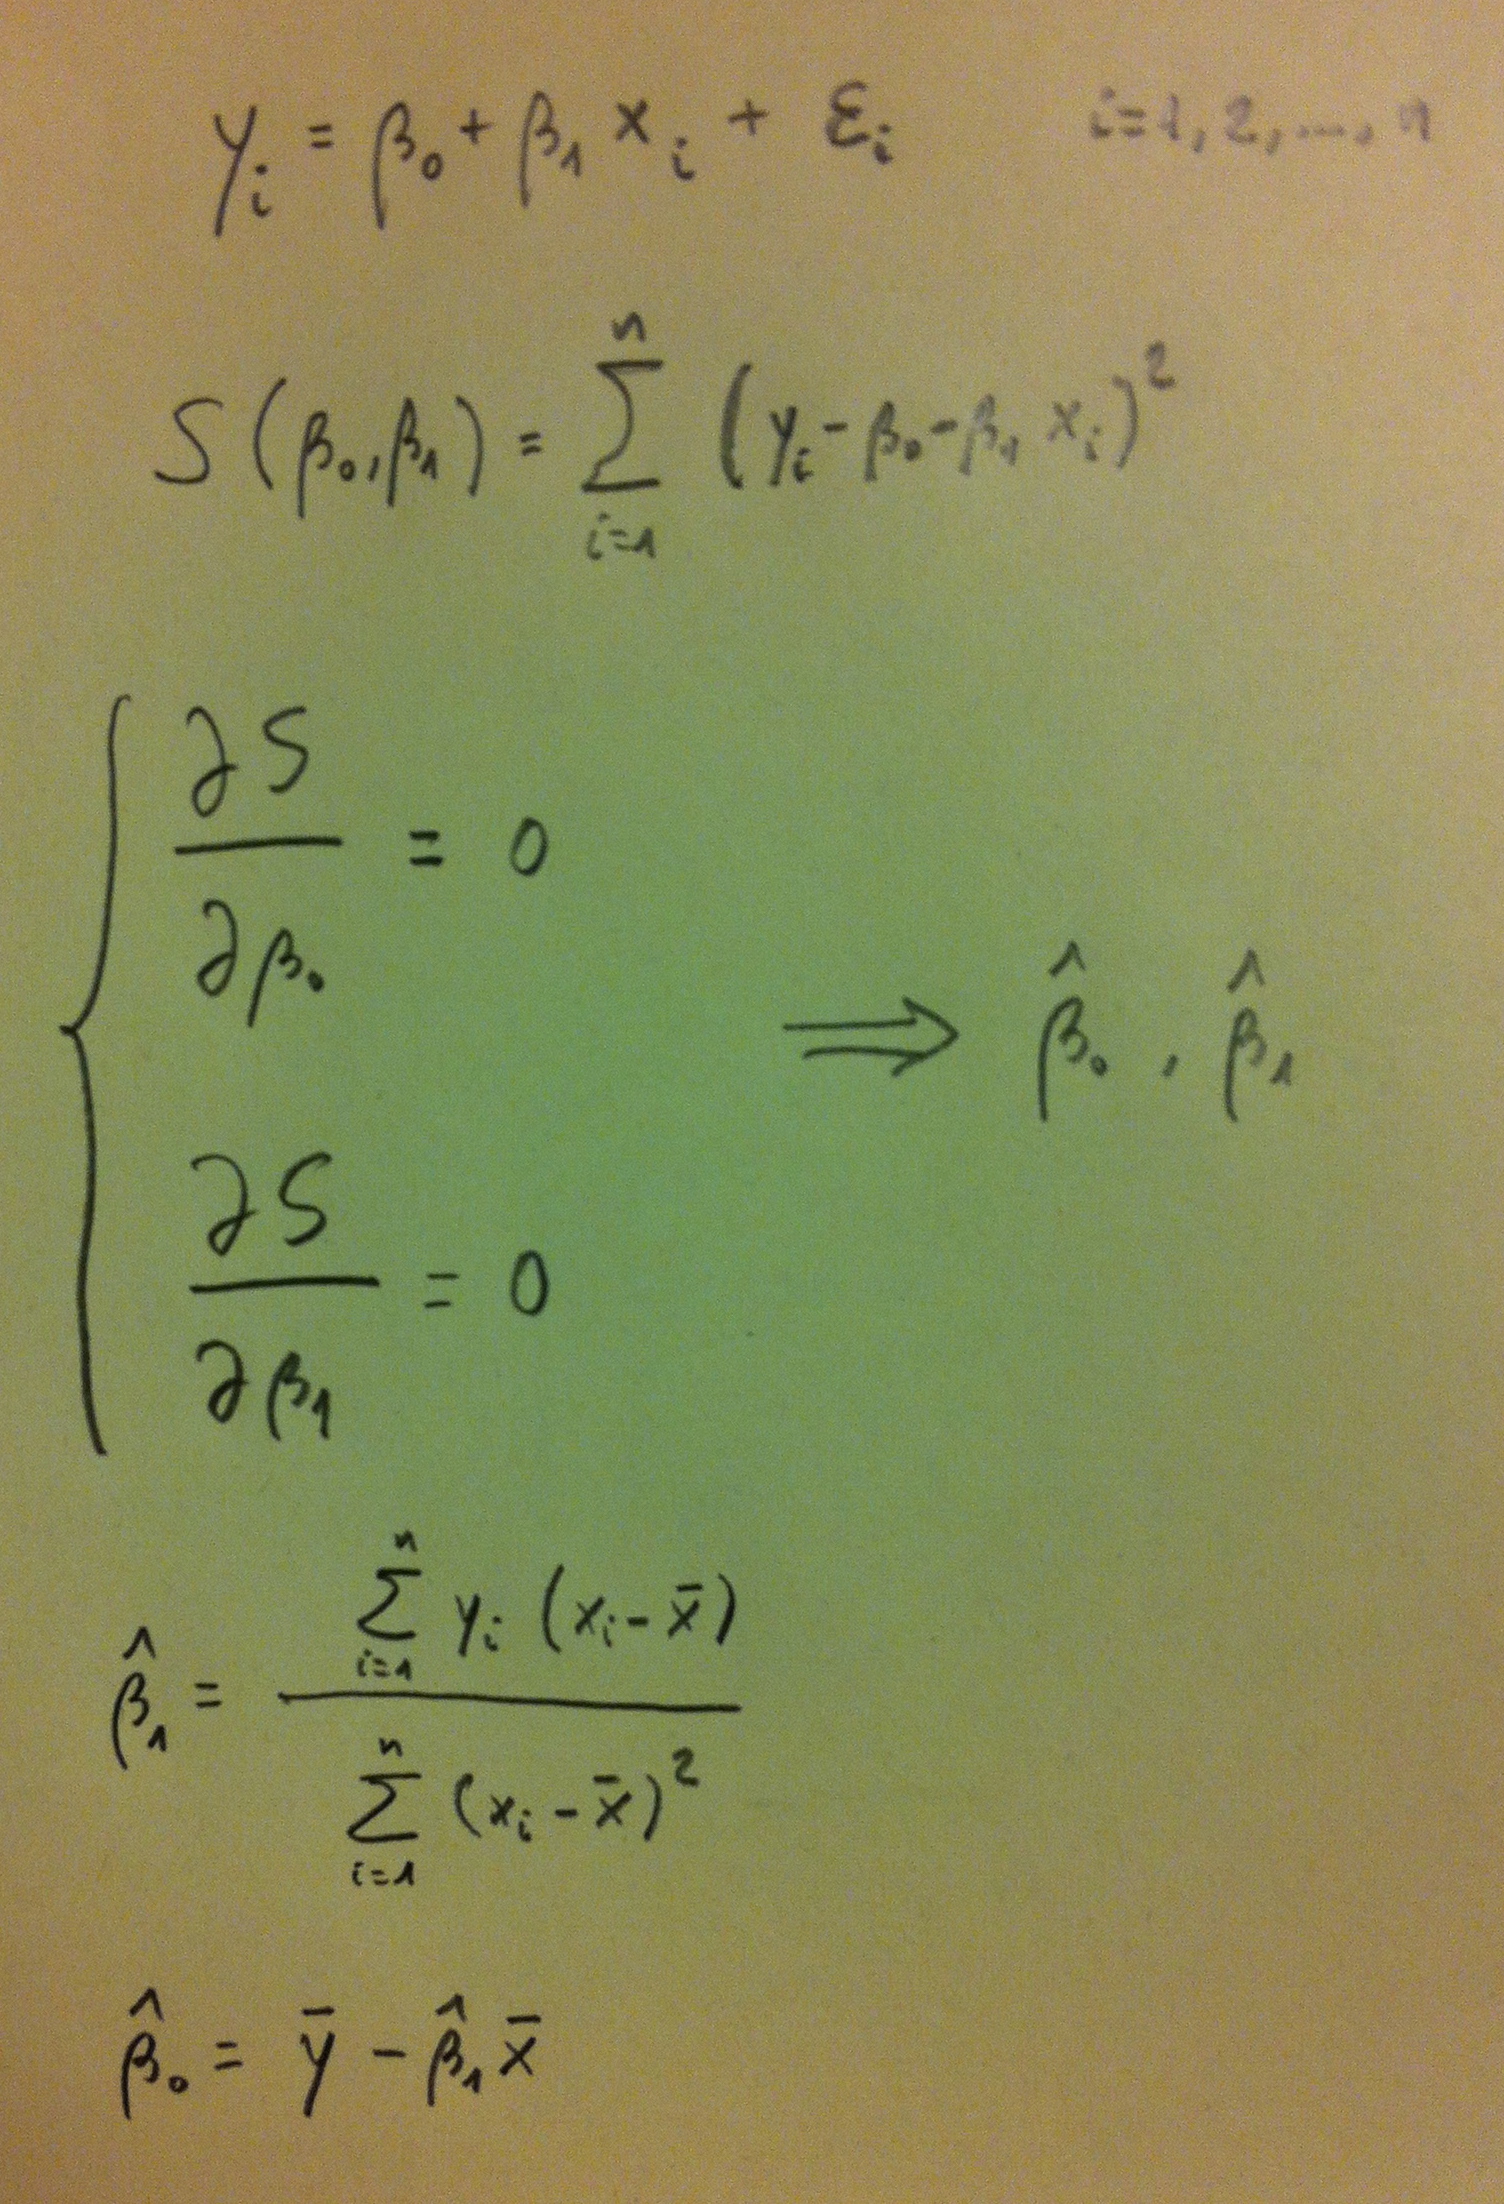 yᵢ = β₀ + β₁ xᵢ + εᵢ i=1, 2, ..., n
S(β₀,β₁) = ∑ⁿᵢ₌₁ (yᵢ - β₀ - β₁ xᵢ)²
{ ∂S/∂β₀ = 0
⟹ β̂₀, β̂₁
∂S/∂β₁ = 0
β̂₁ = ∑ⁿᵢ₌₁ yᵢ (xᵢ - x̄) / ∑ⁿᵢ₌₁ (xᵢ - x̄)²
β̂₀ = ȳ - β̂₁ x̄